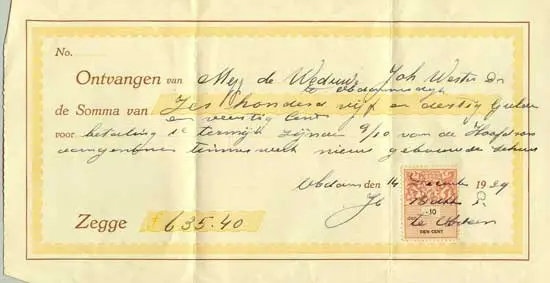 No.
Ontvangen van Mej de Weduwe Joh Wester
te Obdammerdijk
de Somma van Zes honderd vijf en dertig Gulden
en veertig Cent
voor betaling 1e termijn zijnde 9/10 van de
aangenomen timmerwerk nieuw gebouwde
Obdam den 14 1929
Zegge ƒ 635.40
10
TIEN CENT